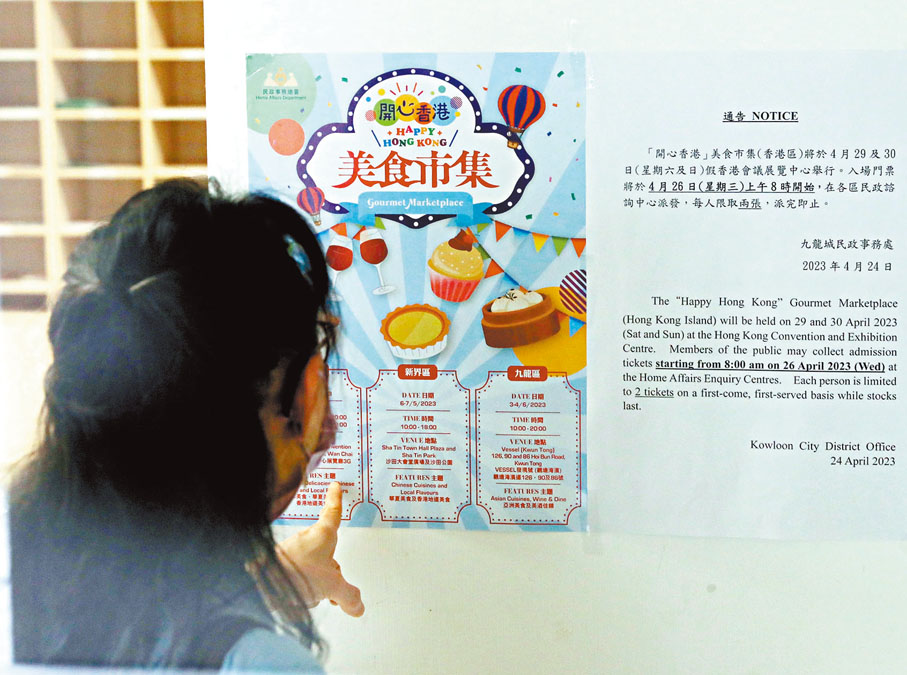 民政事務總署
Home Affairs Department
開心香港
HAPPY
HONG KONG
美食市集
Gourmet Marketplace
Wan Chai
3G
主題
Chinese
and Local
香港地道美食
新界區
DATE 日期
6-7/5/2023
TIME 時間
10:00-18:00
VENUE 地點
Sha Tin Town Hall Plaza and
Sha Tin Park
沙田大會堂廣場及沙田公園
FEATURES 主題
Chinese Cuisines and
Local Flavours
華夏美食及香港地道美食
九龍區
DATE 日期
3-4/6/2023
TIME 時間
10:00-20:00
VENUE 地點
Vessel (Kwun Tong)
126, 90 and 86 Hoi Bun Road,
Kwun Tong
VESSEL發現號 (觀塘海濱)
觀塘海濱道126、90及86號
FEATURES 主題
Asian Cuisines, Wine & Dine
亞洲美食及美酒佳餚
通告 NOTICE
「開心香港」美食市集(香港區)將於 4 月 29 及 30
日(星期六及日)假香港會議展覽中心舉行。入場門票
將於 4 月 26 日(星期三)上午 8 時開始，在各區民政諮
詢中心派發，每人限取兩張，派完即止。
九龍城民政事務處
2023 年 4 月 24 日
The "Happy Hong Kong" Gourmet Marketplace
(Hong Kong Island) will be held on 29 and 30 April 2023
(Sat and Sun) at the Hong Kong Convention and Exhibition
Centre. Members of the public may collect admission
tickets starting from 8:00 am on 26 April 2023 (Wed) at
the Home Affairs Enquiry Centres. Each person is limited
to 2 tickets on a first-come, first-served basis while stocks
last.
Kowloon City District Office
24 April 2023